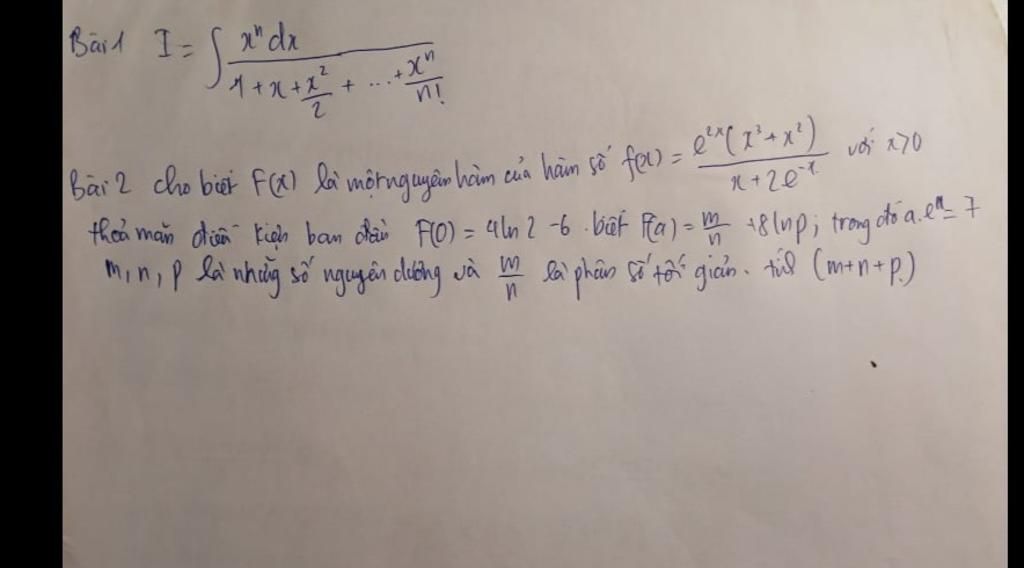 Bài 1 I = ∫ xⁿdx / (1 + x + x²/2 + ... + xⁿ/n!)
Bài 2 cho biết F(x) là một nguyên hàm của hàm số f(x) = e²ˣ(x³ + x²) / (x + 2e⁻ˣ) với x>0
thoả mãn điều kiện ban đầu F(0) = 4ln2 - 6. biết F(a) = m/n + 8lnp; trong đó a.eᵃ = 7
m, n, p là những số nguyên dương và m/n là phân số tối giản. tính (m+n+p.)